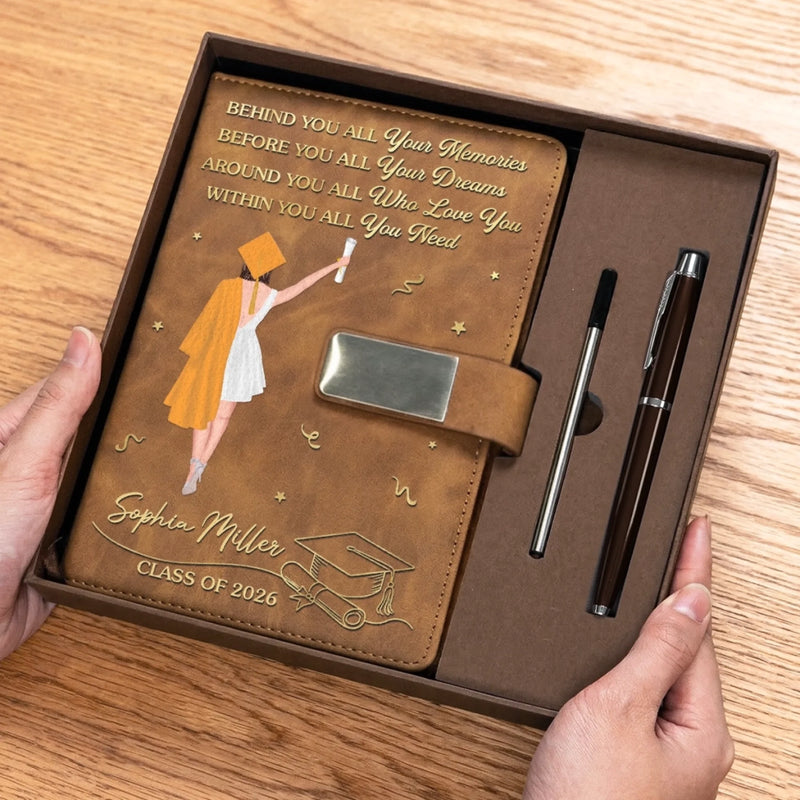 BEHIND YOU ALL Your Memories
BEFORE YOU ALL Your Dreams
AROUND YOU ALL Who Love You
WITHIN YOU ALL You Need
Sophia Miller
CLASS OF 2026